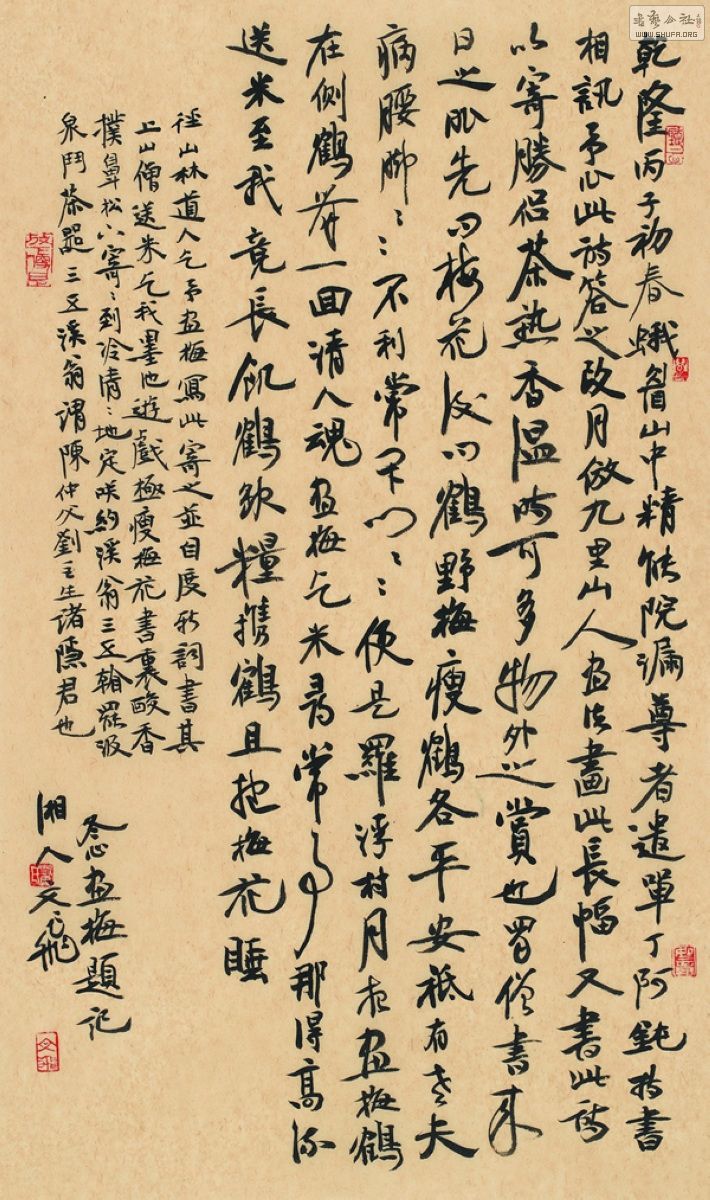 乾隆丙子初春蛾眉山中精能院漏尊者遣單丁阿鈍持書
相訊予以此詩答之改月倣九里山人畫法畫此長幅又書此詩
以寄勝侶茶熟香温時可多物外之賞也蜀僧書來
日之昨先問梅花後問鶴野梅瘦鶴各平安祗有老夫
病腰脚腰脚不利常閉門々便是羅浮村月夜畫梅鶴
在側鶴舞一回清人魂畫梅乞米尋常事那得高流
送米至我竟長飢鶴缺糧攜鶴且抱梅花睡
徑山林道人乞予畫梅寫此寄之並自度新詞書其
上山僧送米乞我墨池遊戲極瘦梅花書裏酸香
撲鼻松下寄々到冷清々地定咲約溪翁三五翰罷汲
泉鬥茶器三五溪翁謂陳仲父劉王生諸隱君也
冬心畫梅題記
湘人文飛
书艺公社
WWW.SHUFA.ORG